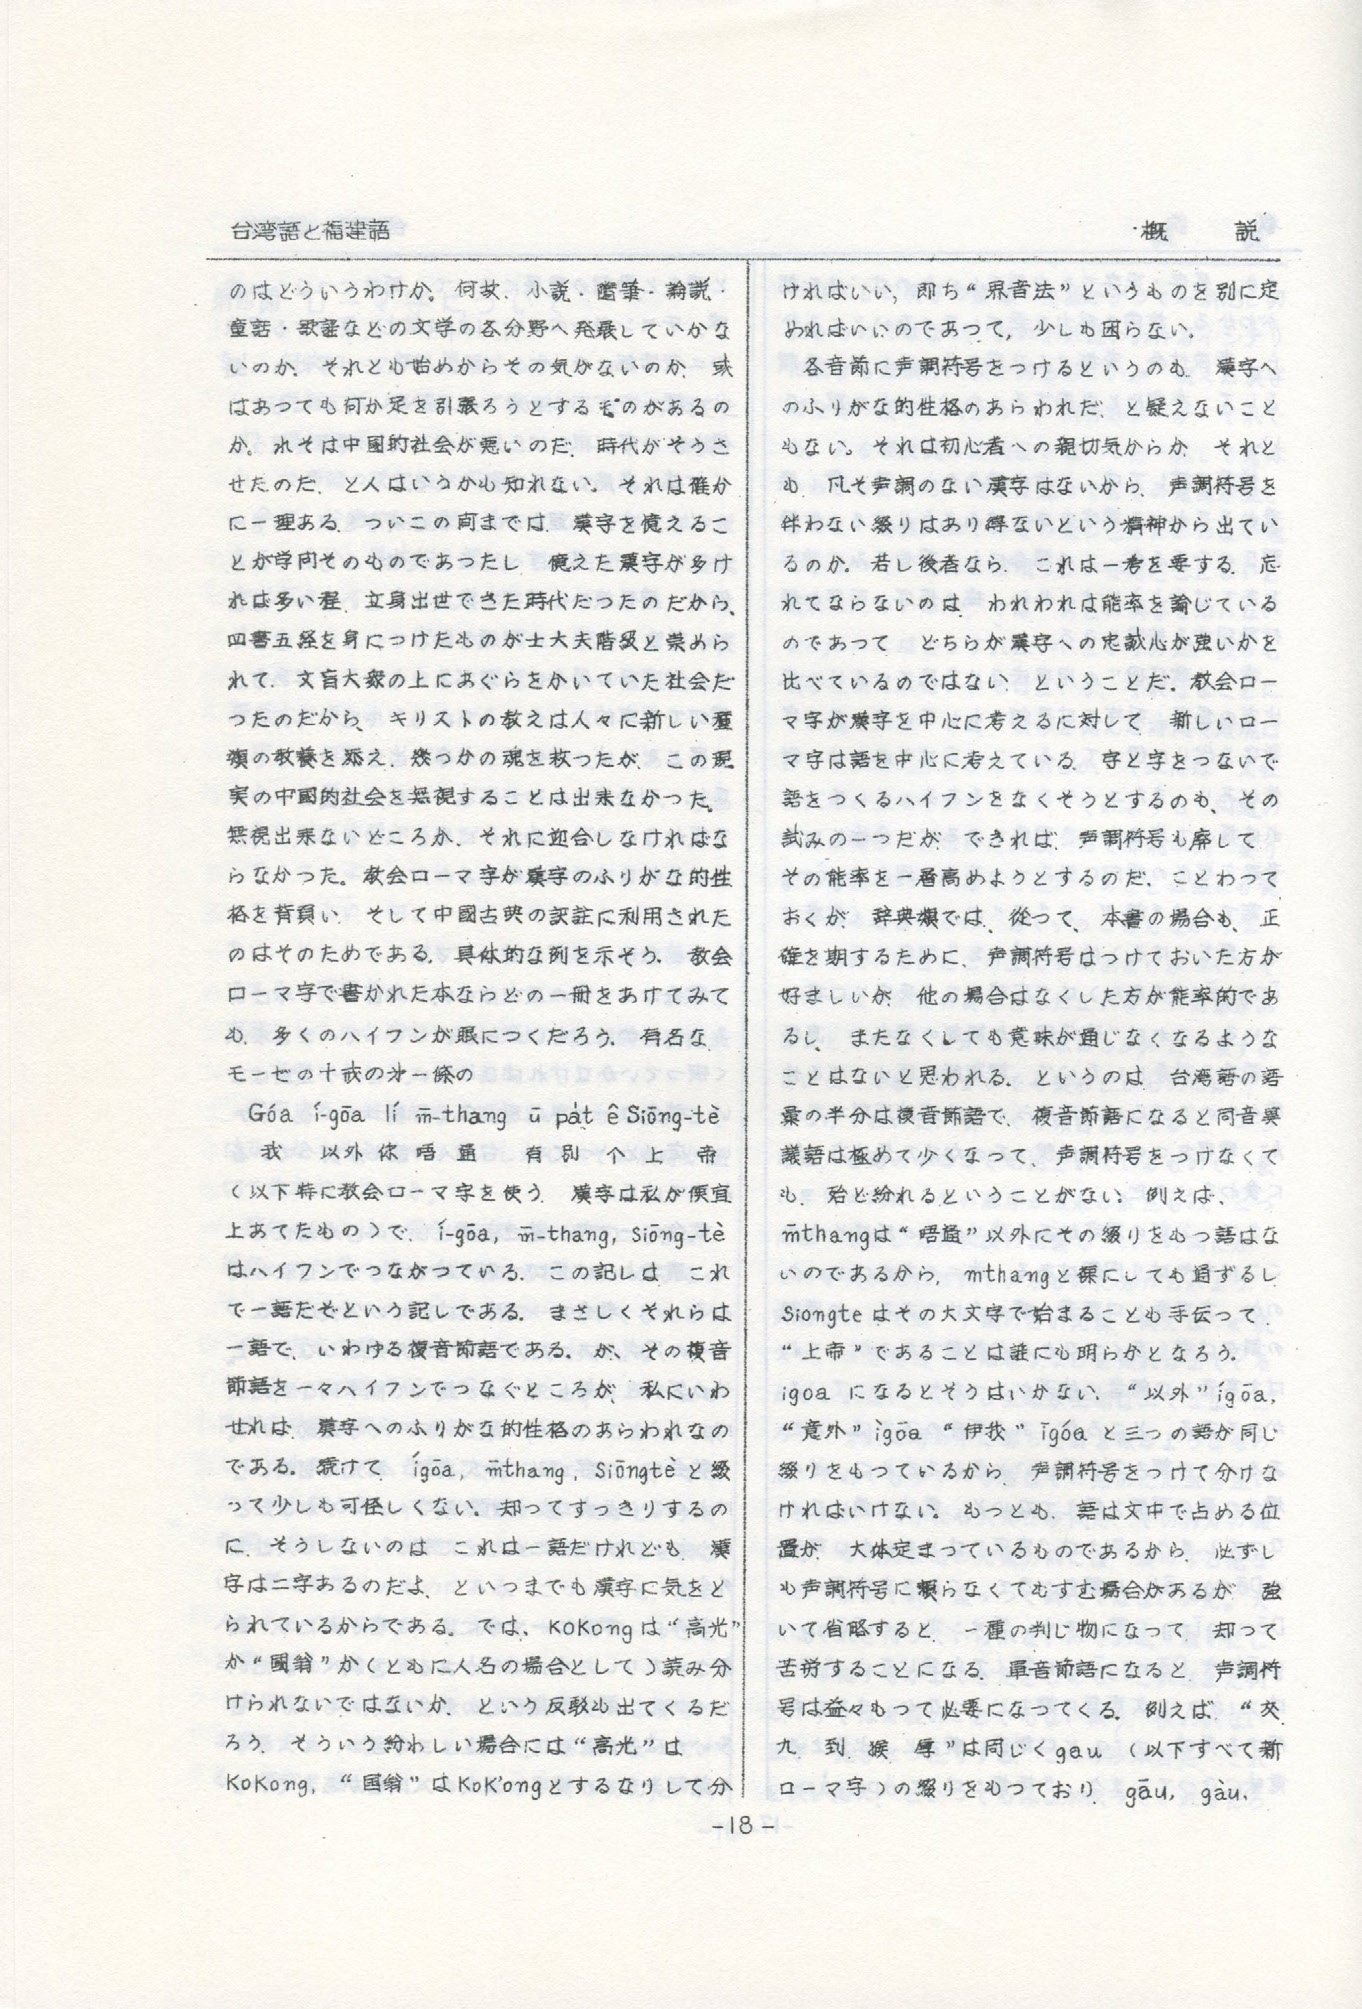 台湾語と福建語
概 説
のはどういうわけか。何故、小説・随筆・論説・
童話・歌謡などの文学の各分野へ発展していかな
いのか、それとも始めからその気がないのか、或
はあっても何か足を引張ろうとするものがあるの
か。れそは中國的社会が悪いのだ、時代がそうさ
せたのだ、と人はいうかも知れない。それは確か
に一理ある、ついこの間までは、漢字を憶えるこ
とが学問そのものであったし、憶えた漢字が多け
れば多い程、立身出世できた時代だったのだから、
四書五経を身につけたものが士大夫階級と崇めら
れて、文盲大衆の上にあぐらをかいていた社会だ
ったのだから、キリストの教えは人々に新しい種
類の教養を添え、幾つかの魂を救ったが、この現
実の中國的社会を無視することは出来なかった。
無視出来ないどころか、それに迎合しなければな
らなかった。教会ローマ字が漢字のふりがな的性
格を背負い、そして中國古典の訳註に利用された
のはそのためである。具体的な例を示そう。教会
ローマ字で書かれた本ならどの一冊をあけてみて
も、多くのハイフンが眼につくだろう。有名な
モーセの十戒の才一條の
Góa í-gōa lí m̄-thang ū pa̍t ê Siōng-tè
我 以外 你 唔 通 有 別 个 上 帝
(以下特に教会ローマ字を使う 漢字は私が便宜
上あてたもの)で、í-gōa, m̄-thang, Siōng-tè
はハイフンでつながっている。この記しは、これ
で一語だぞという記しである。まさしくそれらは
一語で、いわゆる復音節語である。が、その複音
節語を一々ハイフンでつなぐところが、私にいわ
せれば、漢字へのふりがな的性格のあらわれなの
である。続けて、ígōa, m̄thang, Siōngtè と綴
って少しも可怪しくない。却ってすっきりするの
に、そうしないのは、これは一語だけれども、漢
字は二字あるのだよ、といつまでも漢字に気をと
られているからである。では、KoKongは“高光”
か“國翁”か(ともに人名の場合として)読み分
けられないではないか、という反駁も出てくるだ
ろう、そういう紛わしい場合には“高光”は
KoKong, “国翁”はKoK'ongとするなりして分
ければいい、即ち“界音法”というものを別に定
めればいいのであって、少しも困らない。
各音節に声調符号をつけるというのも、漢字へ
のふりがな的性格のあらわれだ、と疑えないこと
もない。それは初心者への親切気からか、それと
も、凡そ声調のない漢字はないから、声調符号を
伴わない綴りはあり得ないという精神から出てい
るのか。若し後者なら、これは一考を要する。忘
れてならないのは、われわれは能率を論じている
のであって、どちらが漢字への忠誠心が強いかを
比べているのではない、ということだ。教会ロー
マ字が漢字を中心に考えるに対して、新しいロー
マ字は語を中心に考えている。字と字をつないで
語をつくるハイフンをなくそうとするのも、その
試みの一つだが、できれば、声調符号も廃して
その能率を一層高めようとするのだ、ことわって
おくが、辞典類では、從って、本書の場合も、正
確を期するために、声調符号はつけておいた方が
好ましいが、他の場合はなくした方が能率的であ
るし、またなくしても意味が通じなくなるような
ことはないと思われる。というのは、台湾語の語
彙の半分は復音節語で、複音節語になると同音異
議語は極めて少くなって、声調符号をつけなくて
も、殆ど紛れるということがない。例えば、
m̄thangは“唔通”以外にその綴りをもつ語はな
いのであるから、mthangと裸にしても通ずるし
Siongte はその大文字で始まることも手伝って、
“上帝”であることは誰にも明らかとなろう。
igoa になるとそうはいかない、“以外”ígōa,
“意外”ìgōa “伊我”īgóa と三つの語が同じ
綴りをもっているから、声調符号をつけて分けな
ければいけない。もっとも、語は文中で占める位
置が、大体定まっているものであるから、必ずし
も声調符号に頼らなくてもすむ場合があるが、強
いて省略すると、一種の判じ物になって、却って
苦労することになる。単音節語になると、声調符
号は益々もって必要になってくる。例えば、“交
九 到 猴 厚”は同じくgau (以下すべて新
ローマ字)の綴りをもっており、gāu, gàu,
-18-